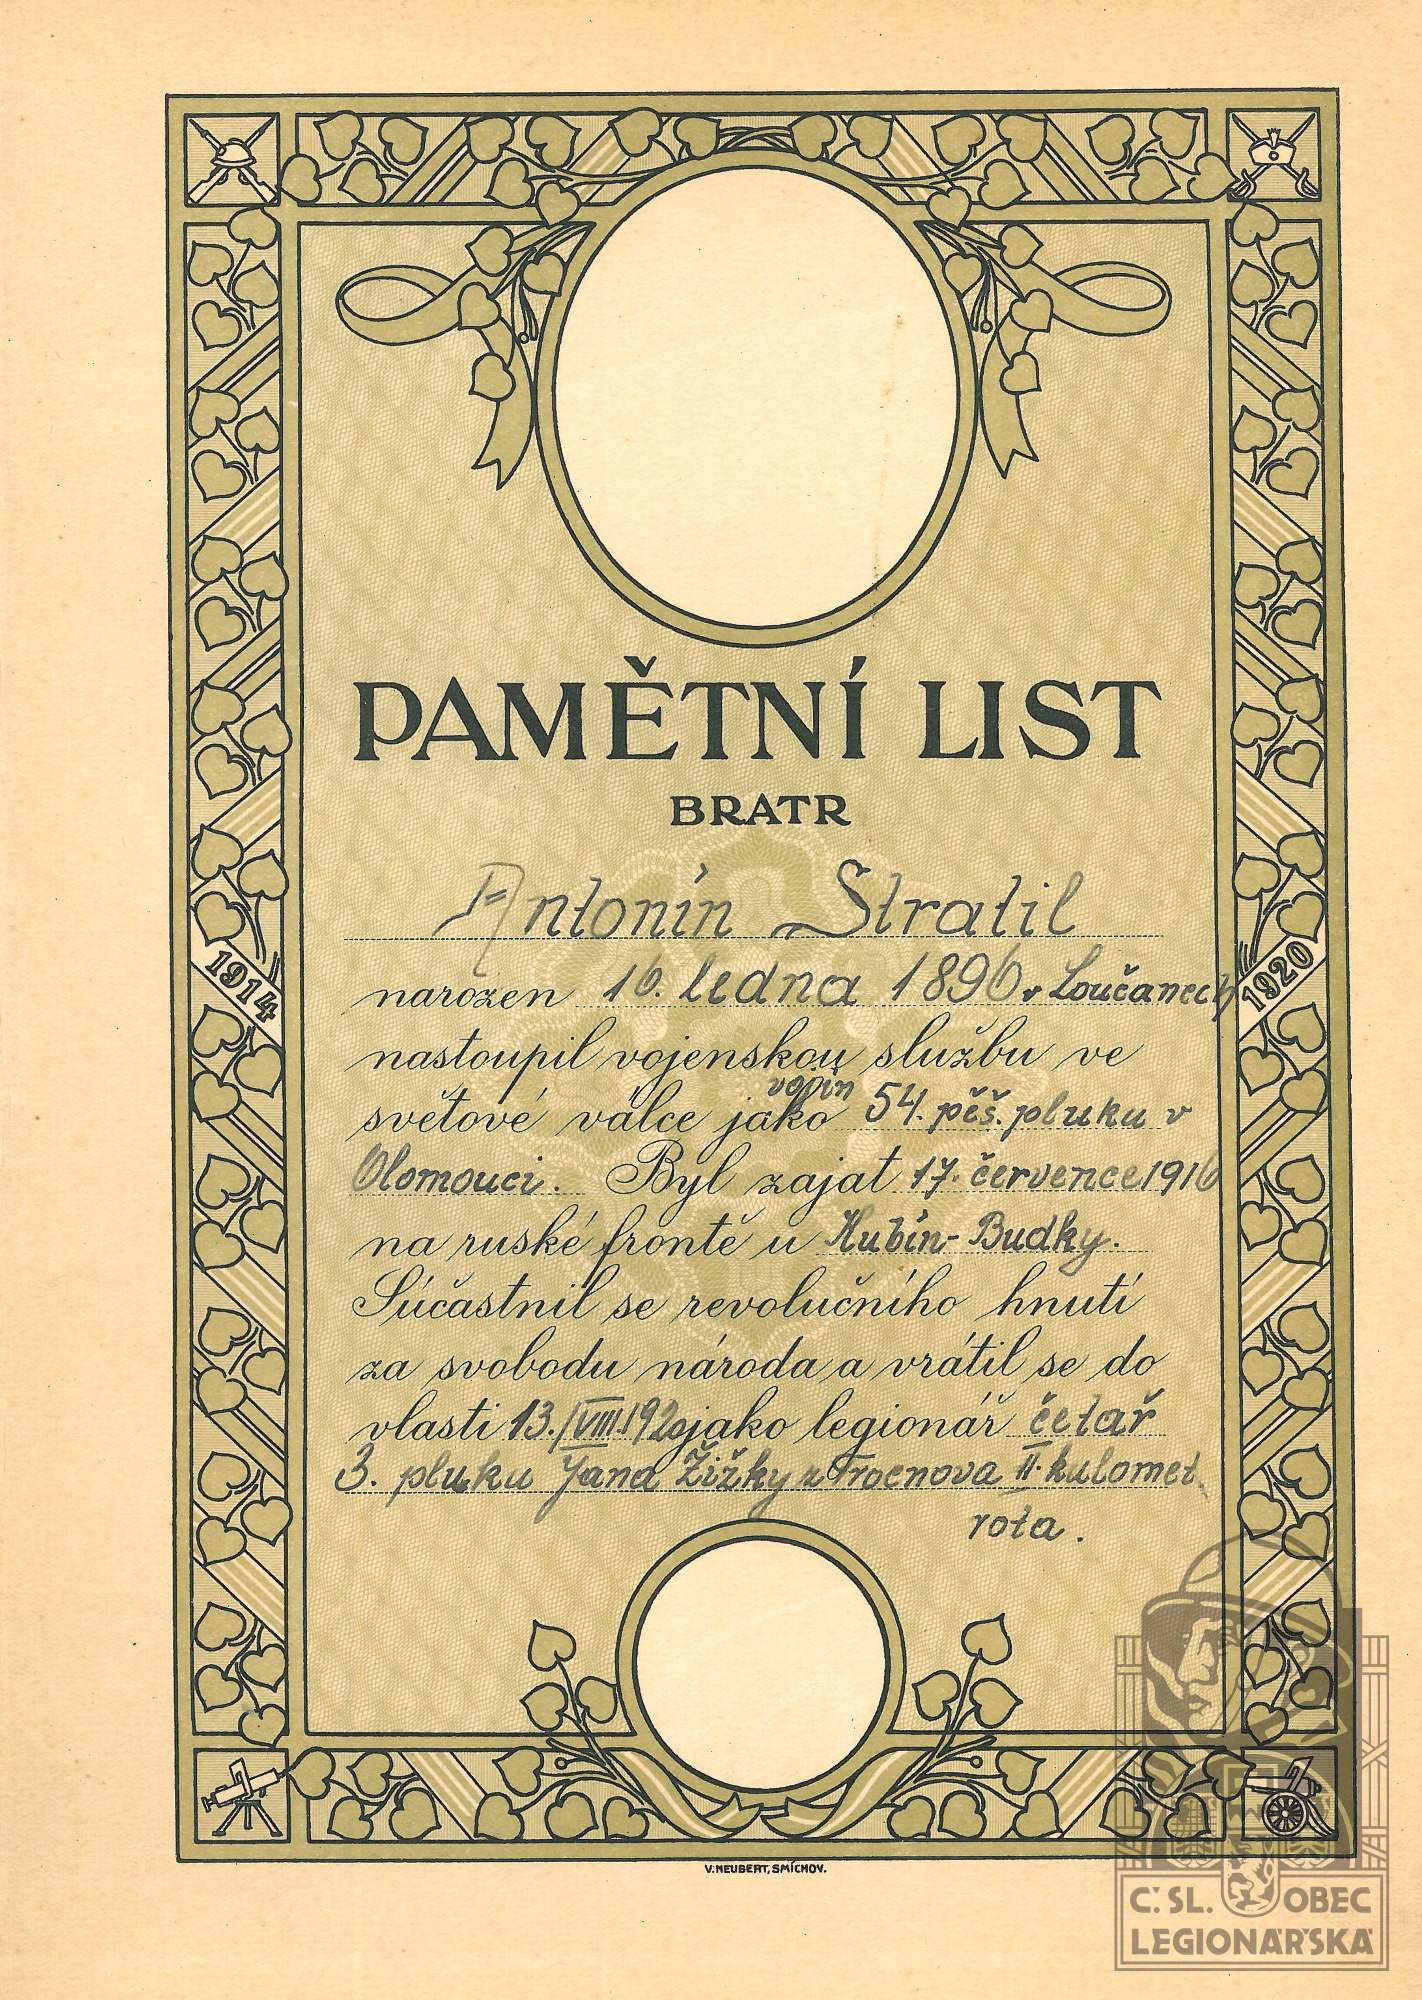 PAMĚTNÍ LIST
BRATR
Antonín Stratil
narozen 16. ledna 1896 v Loučanech
nastoupil vojenskou službu ve
světové válce jako vojín 54. pěš. pluku v
Olomouci. Byl zajat 17. července 1916
na ruské frontě u Hubín-Budky.
Súčastnil se revolučního hnutí
za svobodu národa a vrátil se do
vlasti 13./VIII.1920 jako legionář četař
3. pluku Jana Žižky z Trocnova II. kulomet.
rota.
1914
1920
V. NEUBERT, SMÍCHOV.
Č. SL. OBEC
LEGIONÁŘSKÁ